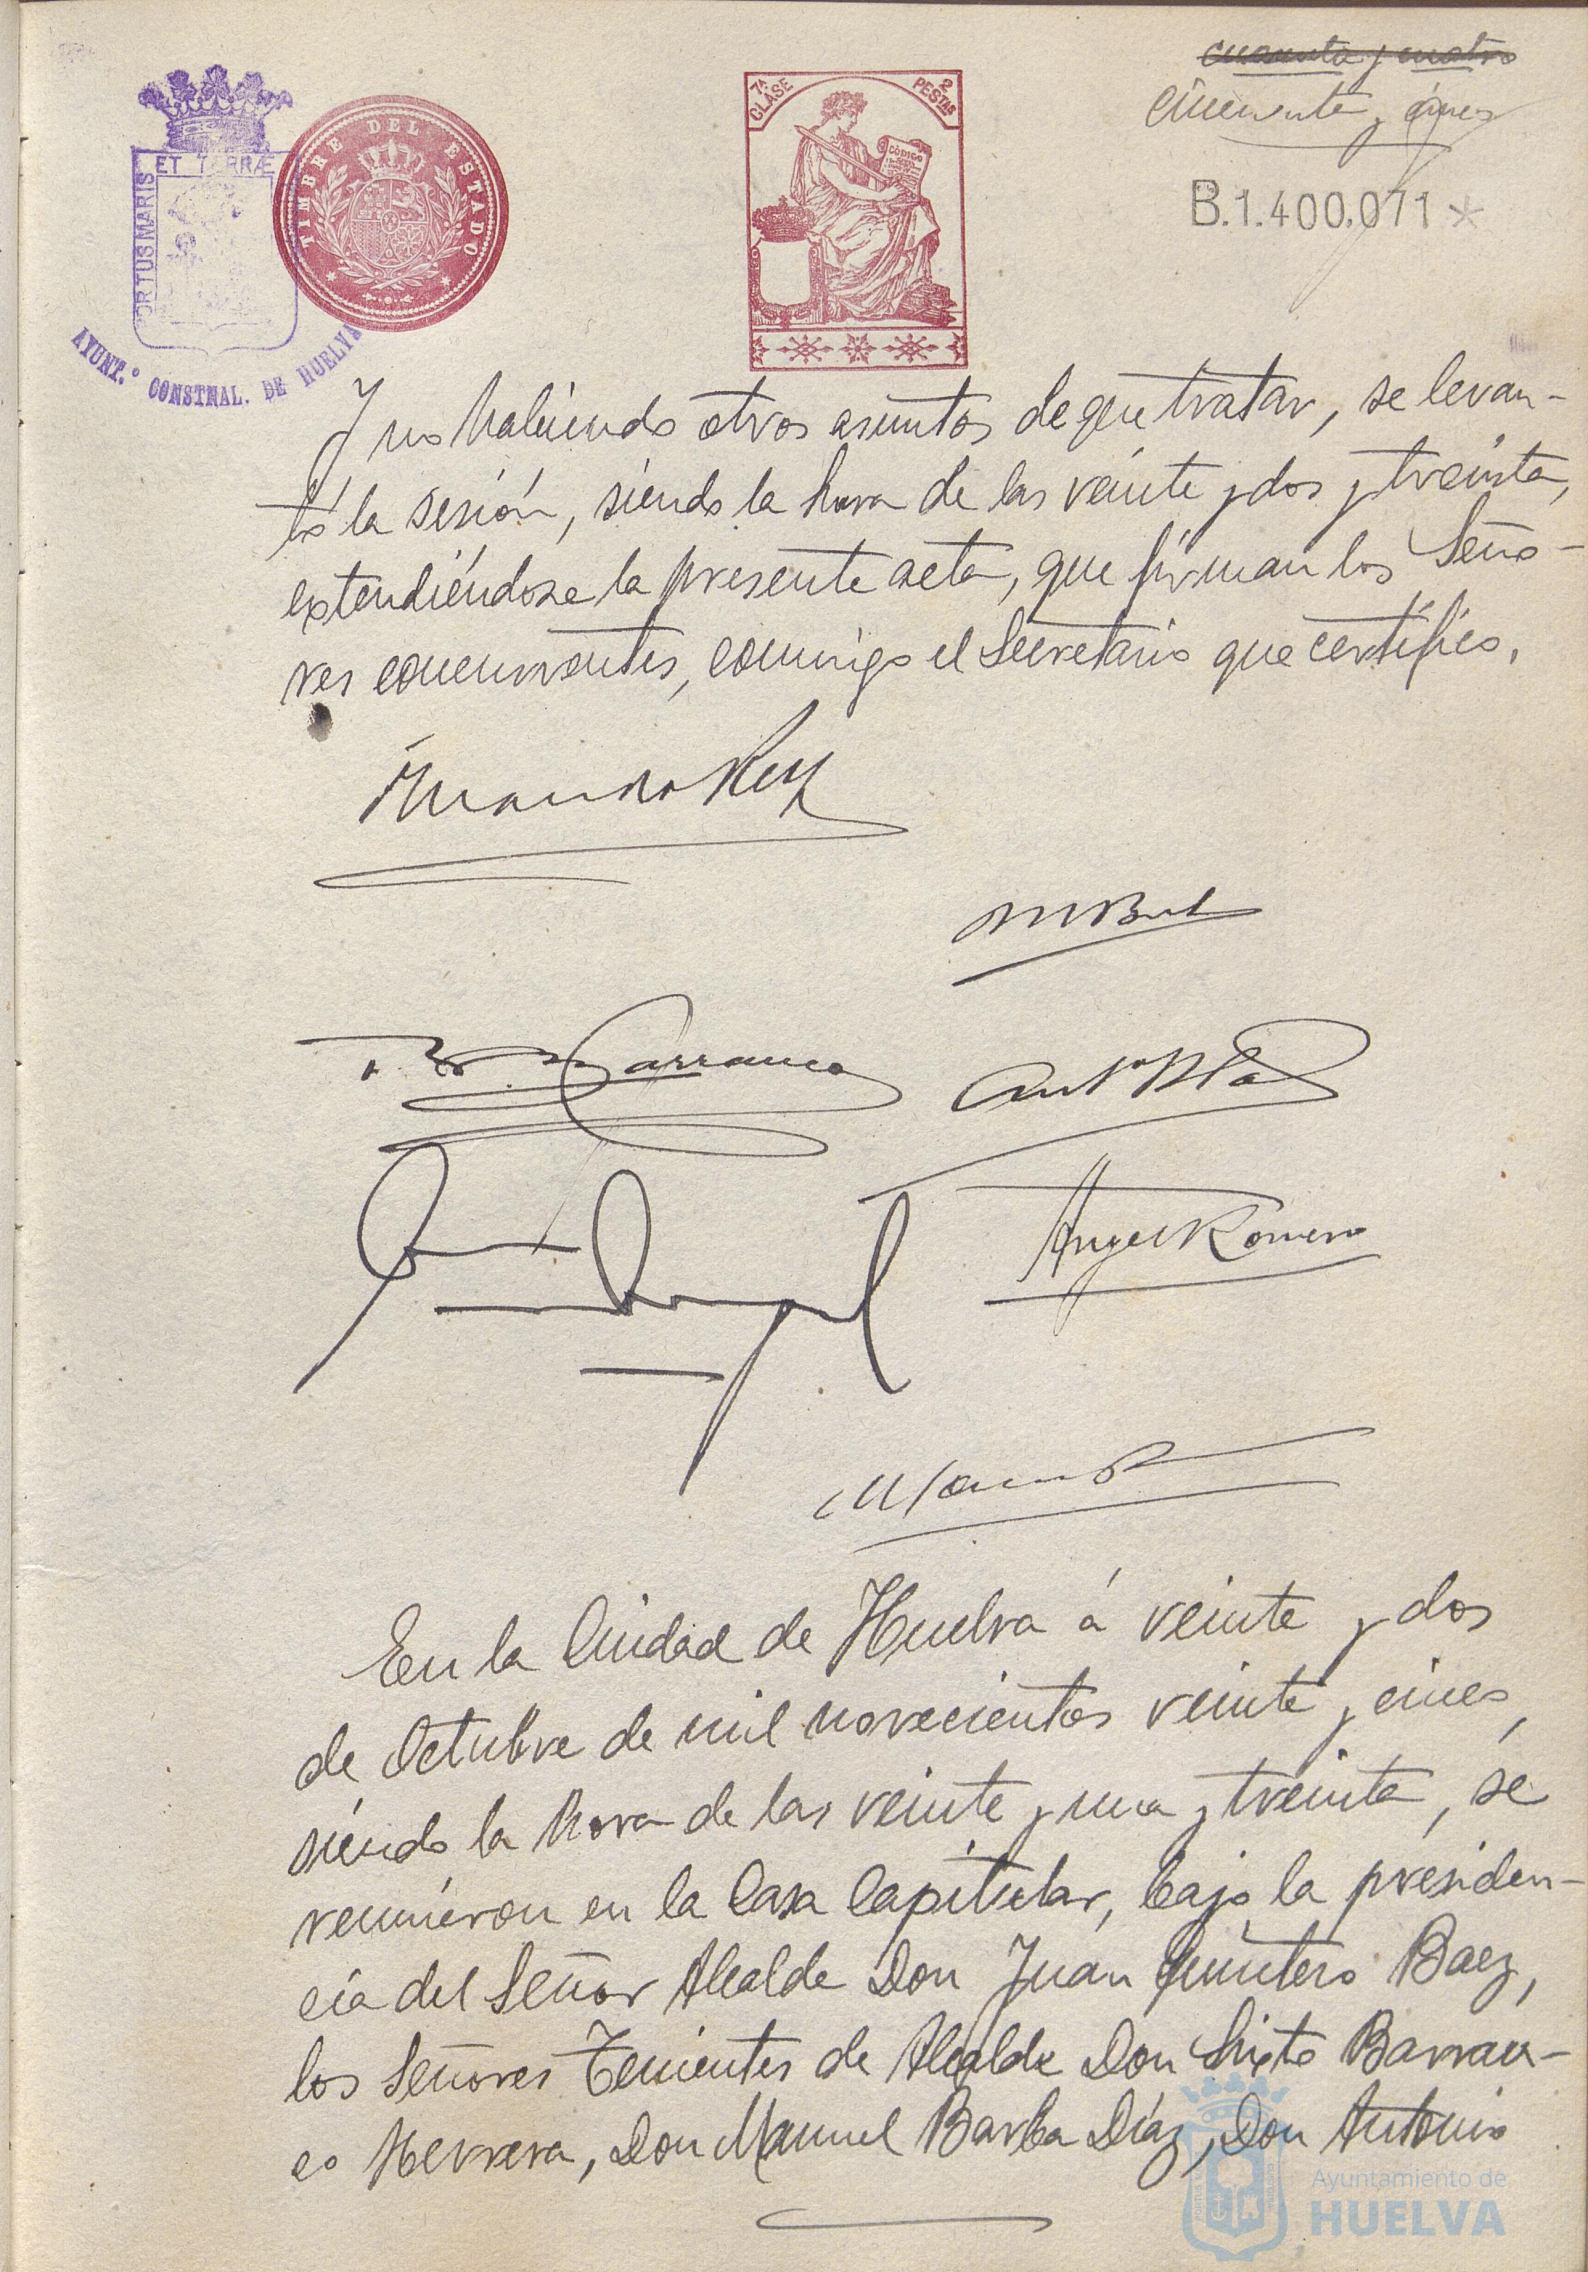 cuarenta y cuatro
cincuenta y cinco
B.1.400.071*
7ª CLASE
2 PESTAS
CODIGO
TIMBRE DEL ESTADO
PORTUS MARIS ET TERRÆ
AYUNT.º CONSTNAL. DE HUELVA
Y no habiendo otros asuntos de que tratar, se levan-
tó la sesión, siendo la hora de las veinte y dos y treinta,
extendiéndose la presente acta, que firman los Seño-
res concurrentes, conmigo el Secretario que certifico.
Barranco
Angel Romero
En la Ciudad de Huelva á veinte y dos
de Octubre de mil novecientos veinte y cinco,
siendo la hora de las veinte y una y treinta, se
reunieron en la Casa Capitular, bajo la presiden-
cia del Señor Alcalde Don Juan Quintero Baez,
los Señores Tenientes de Alcalde Don Sixto Barran-
co Herrera, Don Manuel Barba Díaz, Don Antonio
Ayuntamiento de
HUELVA